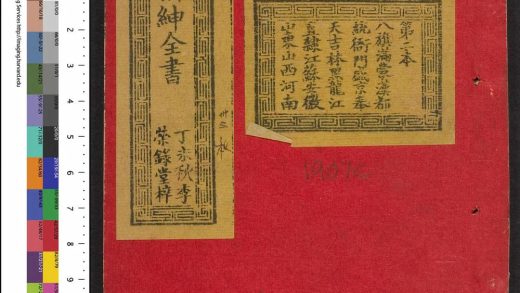 第二本
八旗滿蒙漢都
統衙門盛京奉
天吉林黑龍江
直隸江蘇安徽
山東山西河南
丁未秋季
榮錄堂梓
紳全書
g Services http://imaging.harvard.edu
2
3
4
5
6
7
8
9